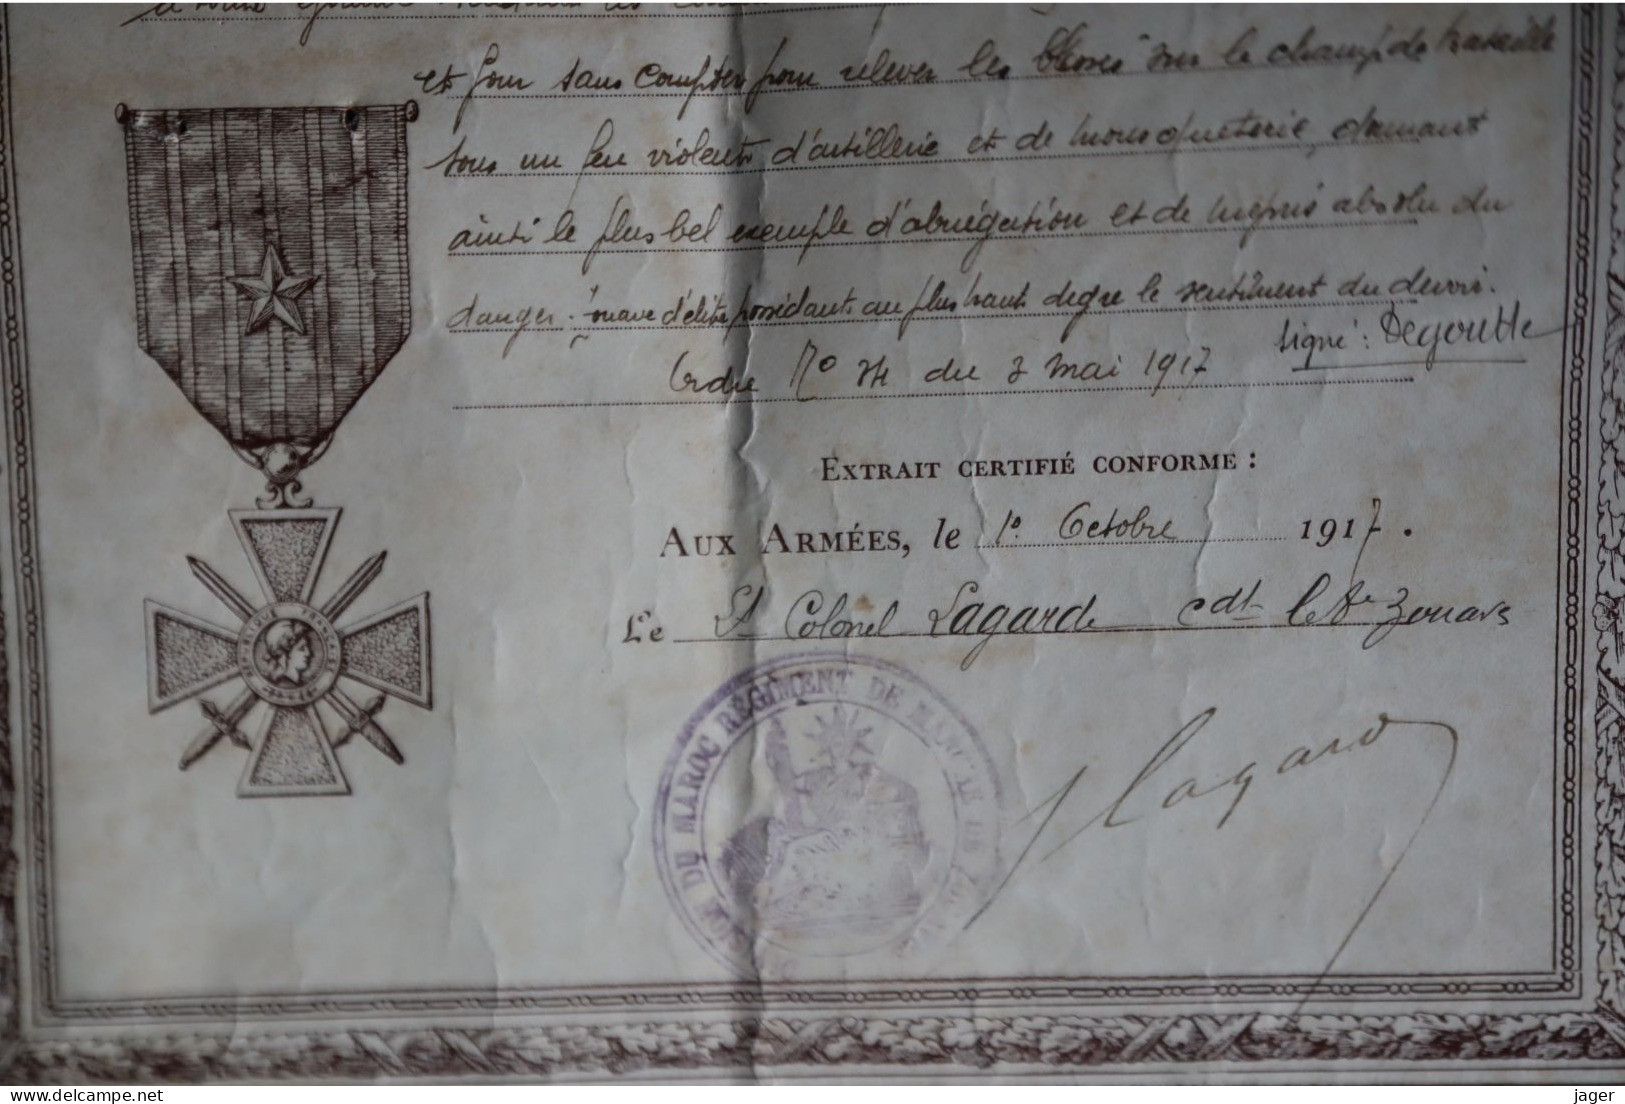 et jour sans compter pour relever les blessés sur le champ de bataille
sous un feu violent d'artillerie et de mousqueterie, donnant
ainsi le plus bel exemple d'abnégation et de mépris absolu du
danger. Zouave d'élite possédant au plus haut degré le sentiment du devoir.
Ordre No 34 du 3 mai 1917 signé : Degoutte
EXTRAIT CERTIFIÉ CONFORME :
AUX ARMÉES, le 1o Octobre 1917.
Le Lt Colonel Lagarde cdt le de Zouaves
DU MAROC RÉGIMENT DE MARCHE
RÉPUBLIQUE FRANÇAISE
Lagarde
delcampe.net
jager